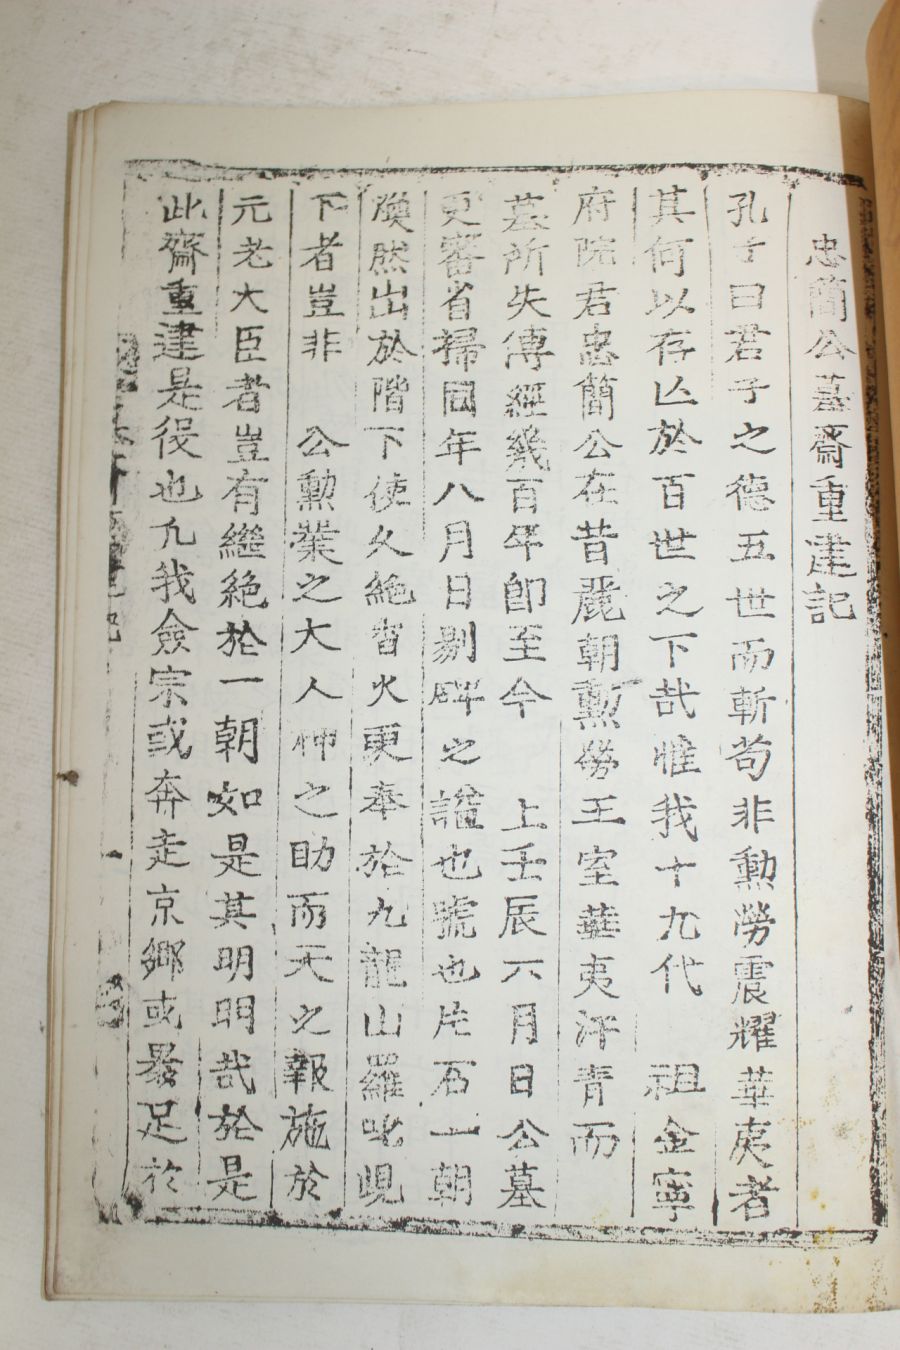 忠簡公墓齋重建記
孔子曰君子之德五世而斬苟非勳勞震耀華夷者
其何以存亾於百世之下哉惟我十九代 祖金寧
府院君忠簡公在昔麗朝勳勞王室華夷汗青而
墓所失傳經幾百年卽至今 上壬辰六月日公墓
更審省掃同年八月日剔碑之誰也號也片石一朝
煥然出於階下使久絶香火更奉於九龍山羅叱峴
下者豈非 公勳業之大人神之助而天之報施於
元老大臣者豈有繼絶於一朝如是其明明哉於是
此齋重建是役也凢我僉宗或奔走京鄕或暴足於